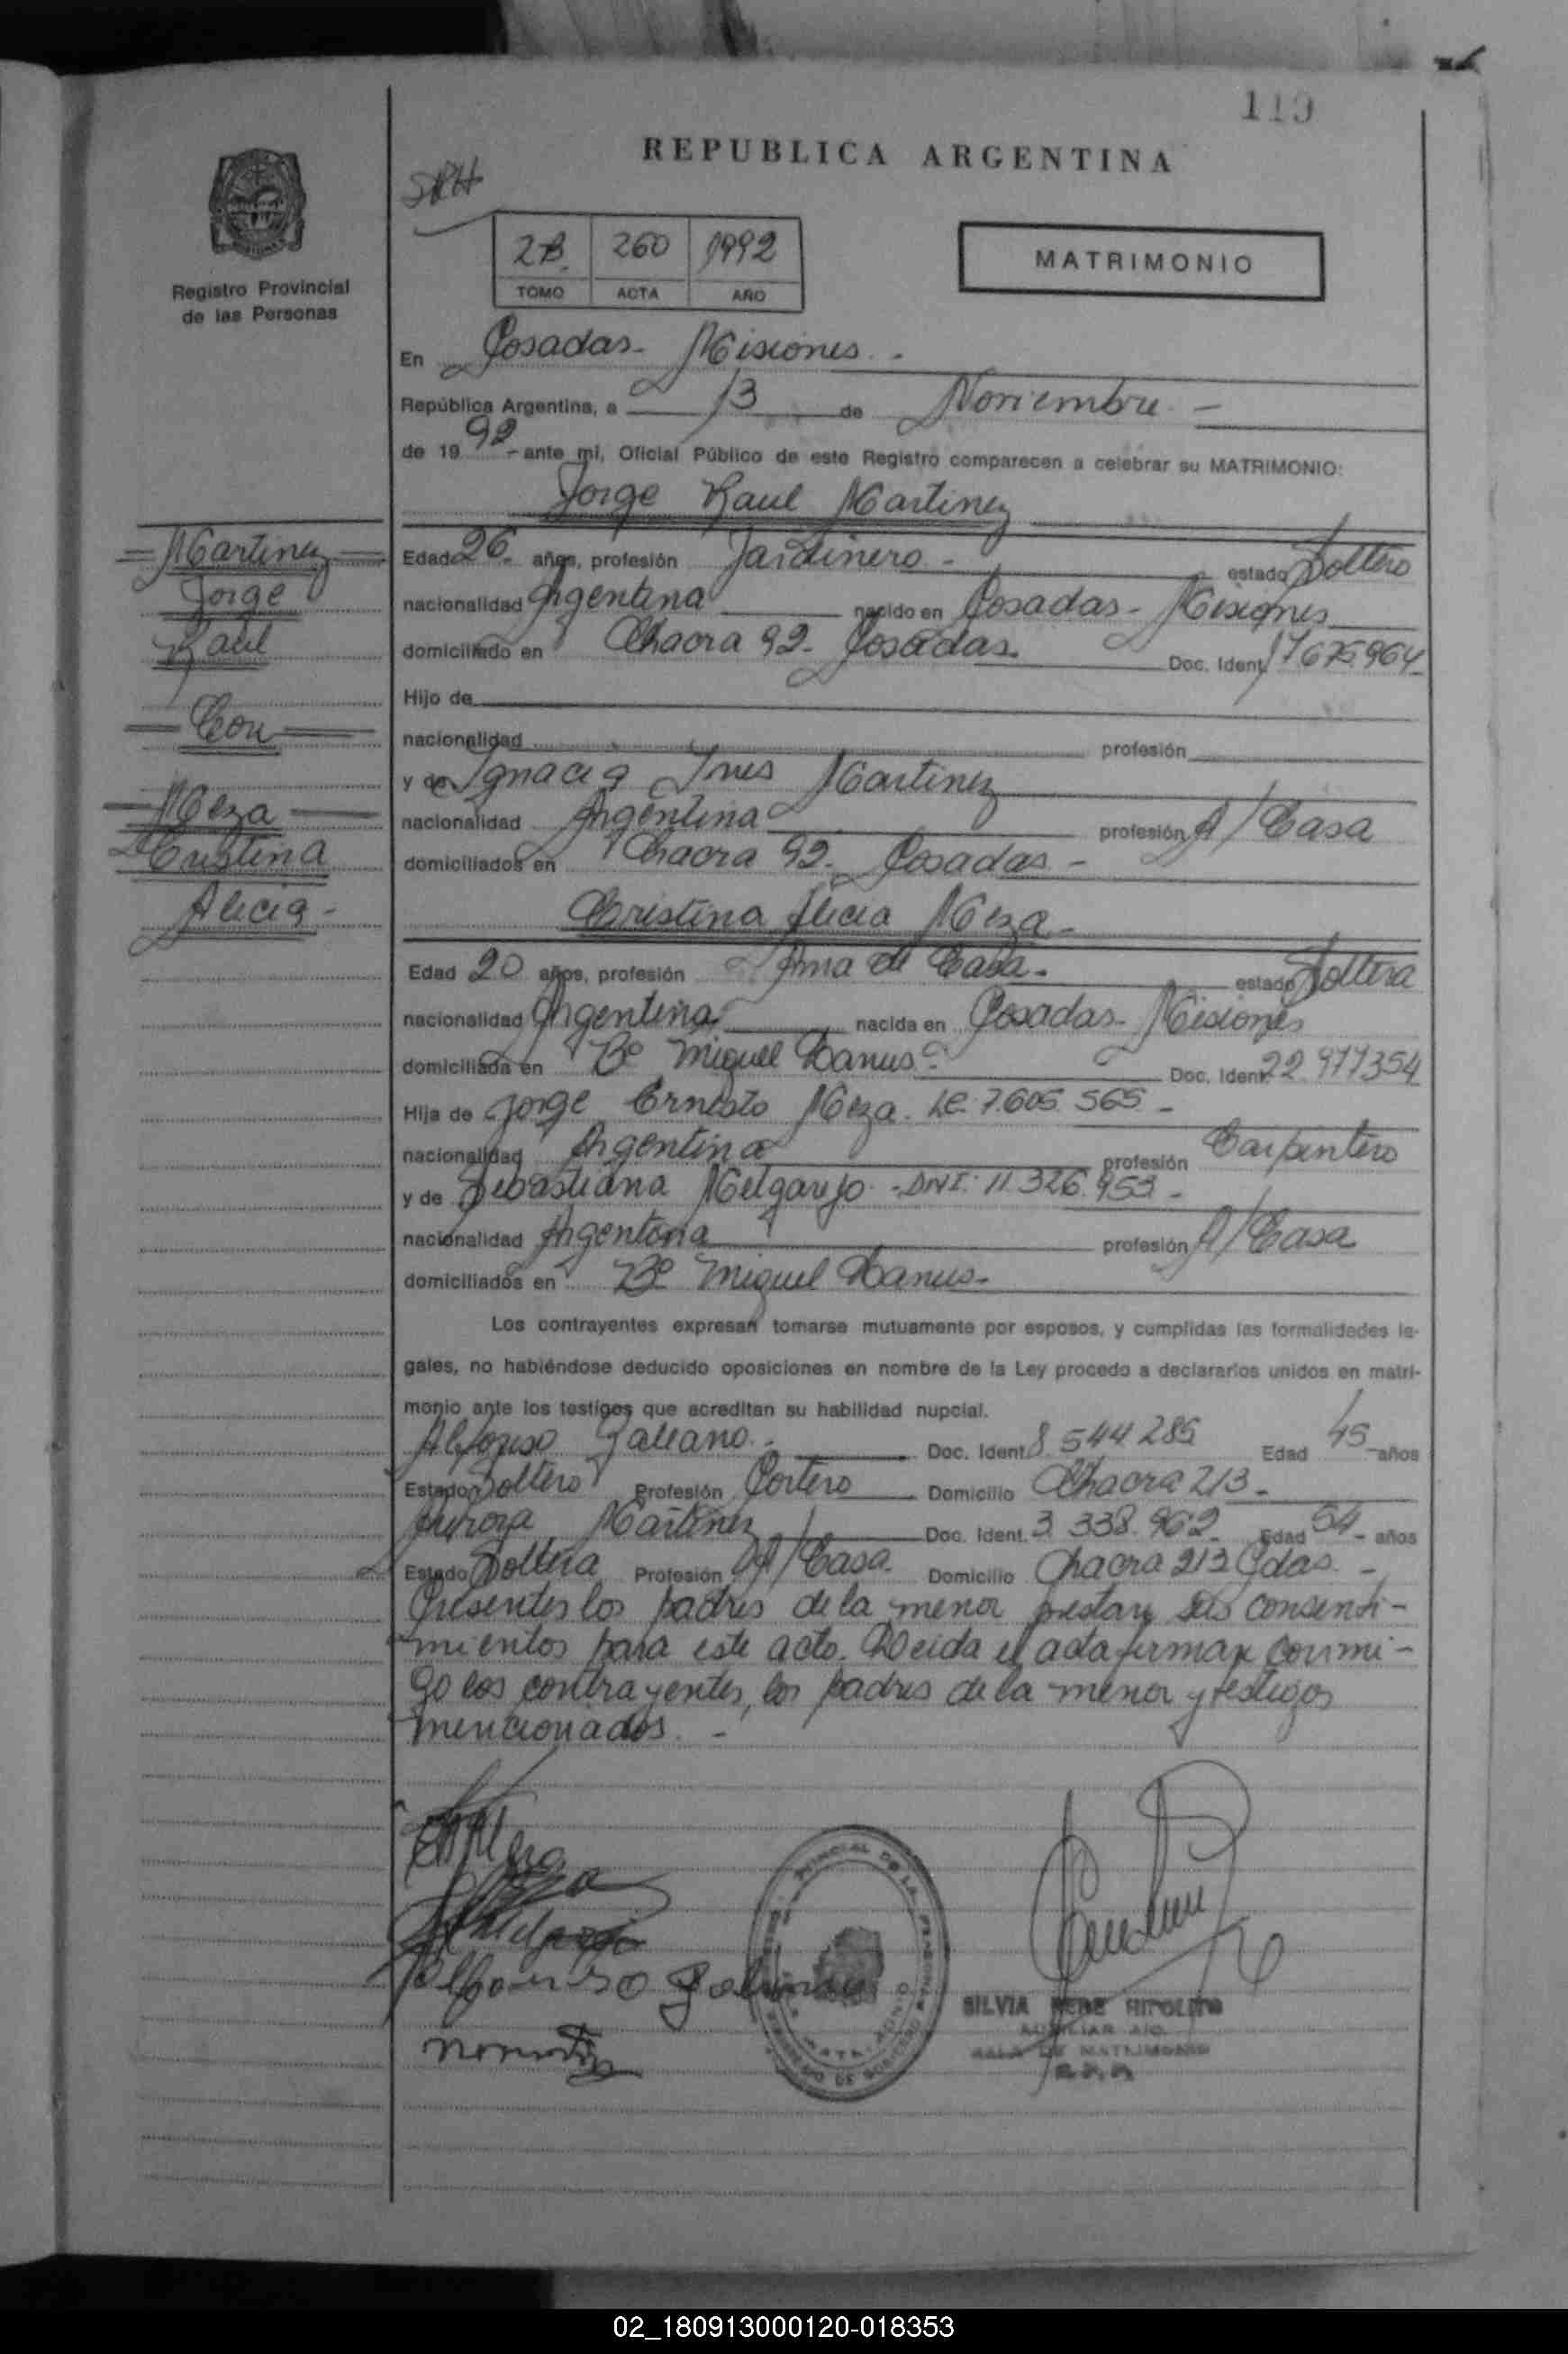 119
REPUBLICA ARGENTINA
SRH
2B 260 1992
TOMO ACTA AÑO
MATRIMONIO
Registro Provincial
de las Personas
En Posadas - Misiones. -
República Argentina, a 13 de Noviembre -
de 1992 - ante mi, Oficial Público de este Registro comparecen a celebrar su MATRIMONIO:
Jorge Raul Martinez
Martinez
Jorge
Raúl
Con
Meza
Cristina
Alicia -
Edad 26 años, profesión Jardinero - estado Soltero
nacionalidad Argentina nacido en Posadas - Misiones
domiciliado en Chacra 92 - Posadas. Doc. Ident. 17675964
Hijo de
nacionalidad profesión
y de Ignacia Ines Martinez
nacionalidad Argentina profesión A/Casa
domiciliados en Chacra 92. Posadas -
Cristina Alicia Meza -
Edad 20 años, profesión Ama de Casa - estado Soltera
nacionalidad Argentina nacida en Posadas - Misiones
domiciliada en Bº Miguel Lanus - Doc. Ident. 22.977354
Hija de Jorge Ernesto Meza - LE 7.605 565 -
nacionalidad Argentina profesión Carpintero
y de Sebastiana Melgarejo - DNI: 11.326.953 -
nacionalidad Argentina profesión A/Casa
domiciliados en Bº Miguel Lanus -
Los contrayentes expresan tomarse mutuamente por esposos, y cumplidas las formalidades le-
gales, no habiéndose deducido oposiciones en nombre de la Ley procedo a declararlos unidos en matri-
monio ante los testigos que acreditan su habilidad nupcial.
Alfonso Galeano - Doc. Ident. 8.544 285 Edad 45 años
Estado Soltero Profesión Portero Domicilio Chacra 213 -
Aurora Martinez Doc. Ident. 3.338.962 Edad 54 - años
Estado Soltera Profesión A/Casa - Domicilio Chacra 213 Pdas. -
Presentes los padres de la menor prestan sus consenti-
mientos para este acto. Leida el acta firman conmi-
go los contrayentes, los padres de la menor y testigos
mencionados. -
Alfonso Galeano
SILVIA HIPOLITO
AUXILIAR
SALA DE MATRIMONIO
02_180913000120-018353